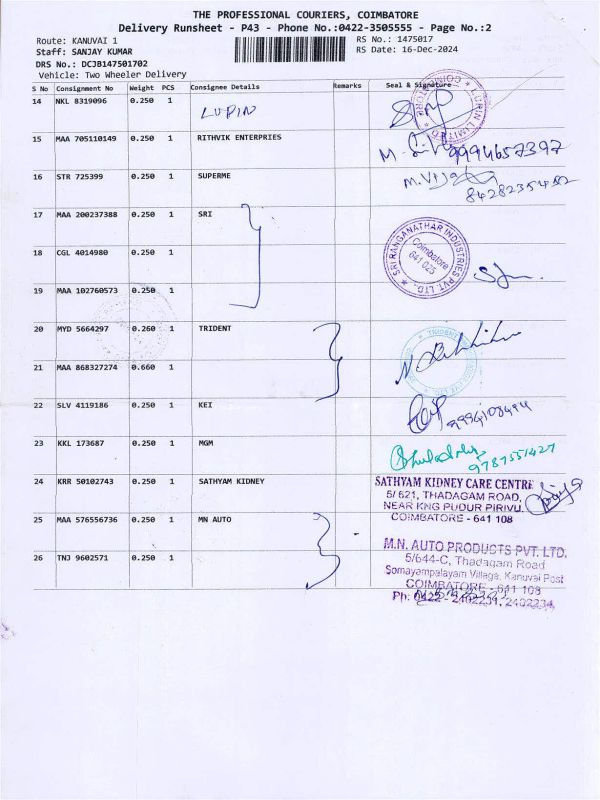 THE PROFESSIONAL COURIERS, COIMBATORE
Delivery Runsheet - P43 - Phone No.:0422-3505555 - Page No.:2
Route: KANUVAI 1
Staff: SANJAY KUMAR
DRS No.: DCJB147501702
Vehicle: Two Wheeler Delivery
RS No.: 1475017
RS Date: 16-Dec-2024
S No Consignment No Weight PCS Consignee Details Remarks Seal & Signature
14 NKL 8319096 0.250 1 LUPIN
LUPIN LIMITED
15 MAA 705110149 0.250 1 RITHVIK ENTERPRIES
9994657397
16 STR 725399 0.250 1 SUPERME
17 MAA 200237388 0.250 1 SRI
SRI RANGANATHAR INDUSTRIES PVT. LTD.
Coimbatore
641 025
18 CGL 4014980 0.250 1
19 MAA 102760573 0.250 1
20 MYD 5664297 0.260 1 TRIDENT
TRIDENT
21 MAA 868327274 0.660 1
22 SLV 4119186 0.250 1 KEI
23 KKL 173687 0.250 1 MGM
9787551427
24 KRR 50102743 0.250 1 SATHYAM KIDNEY
SATHYAM KIDNEY CARE CENTRE
5/ 621, THADAGAM ROAD,
NEAR KNG PUDUR PIRIVU,
COIMBATORE - 641 108
25 MAA 576556736 0.250 1 MN AUTO
26 TNJ 9602571 0.250 1
M.N. AUTO PRODUCTS PVT. LTD.
5/644-C, Thadagam Road
Somayampalayam Village, Kanuvai Post
COIMBATORE - 641 108
Ph: 0422 - 2402231, 2402234